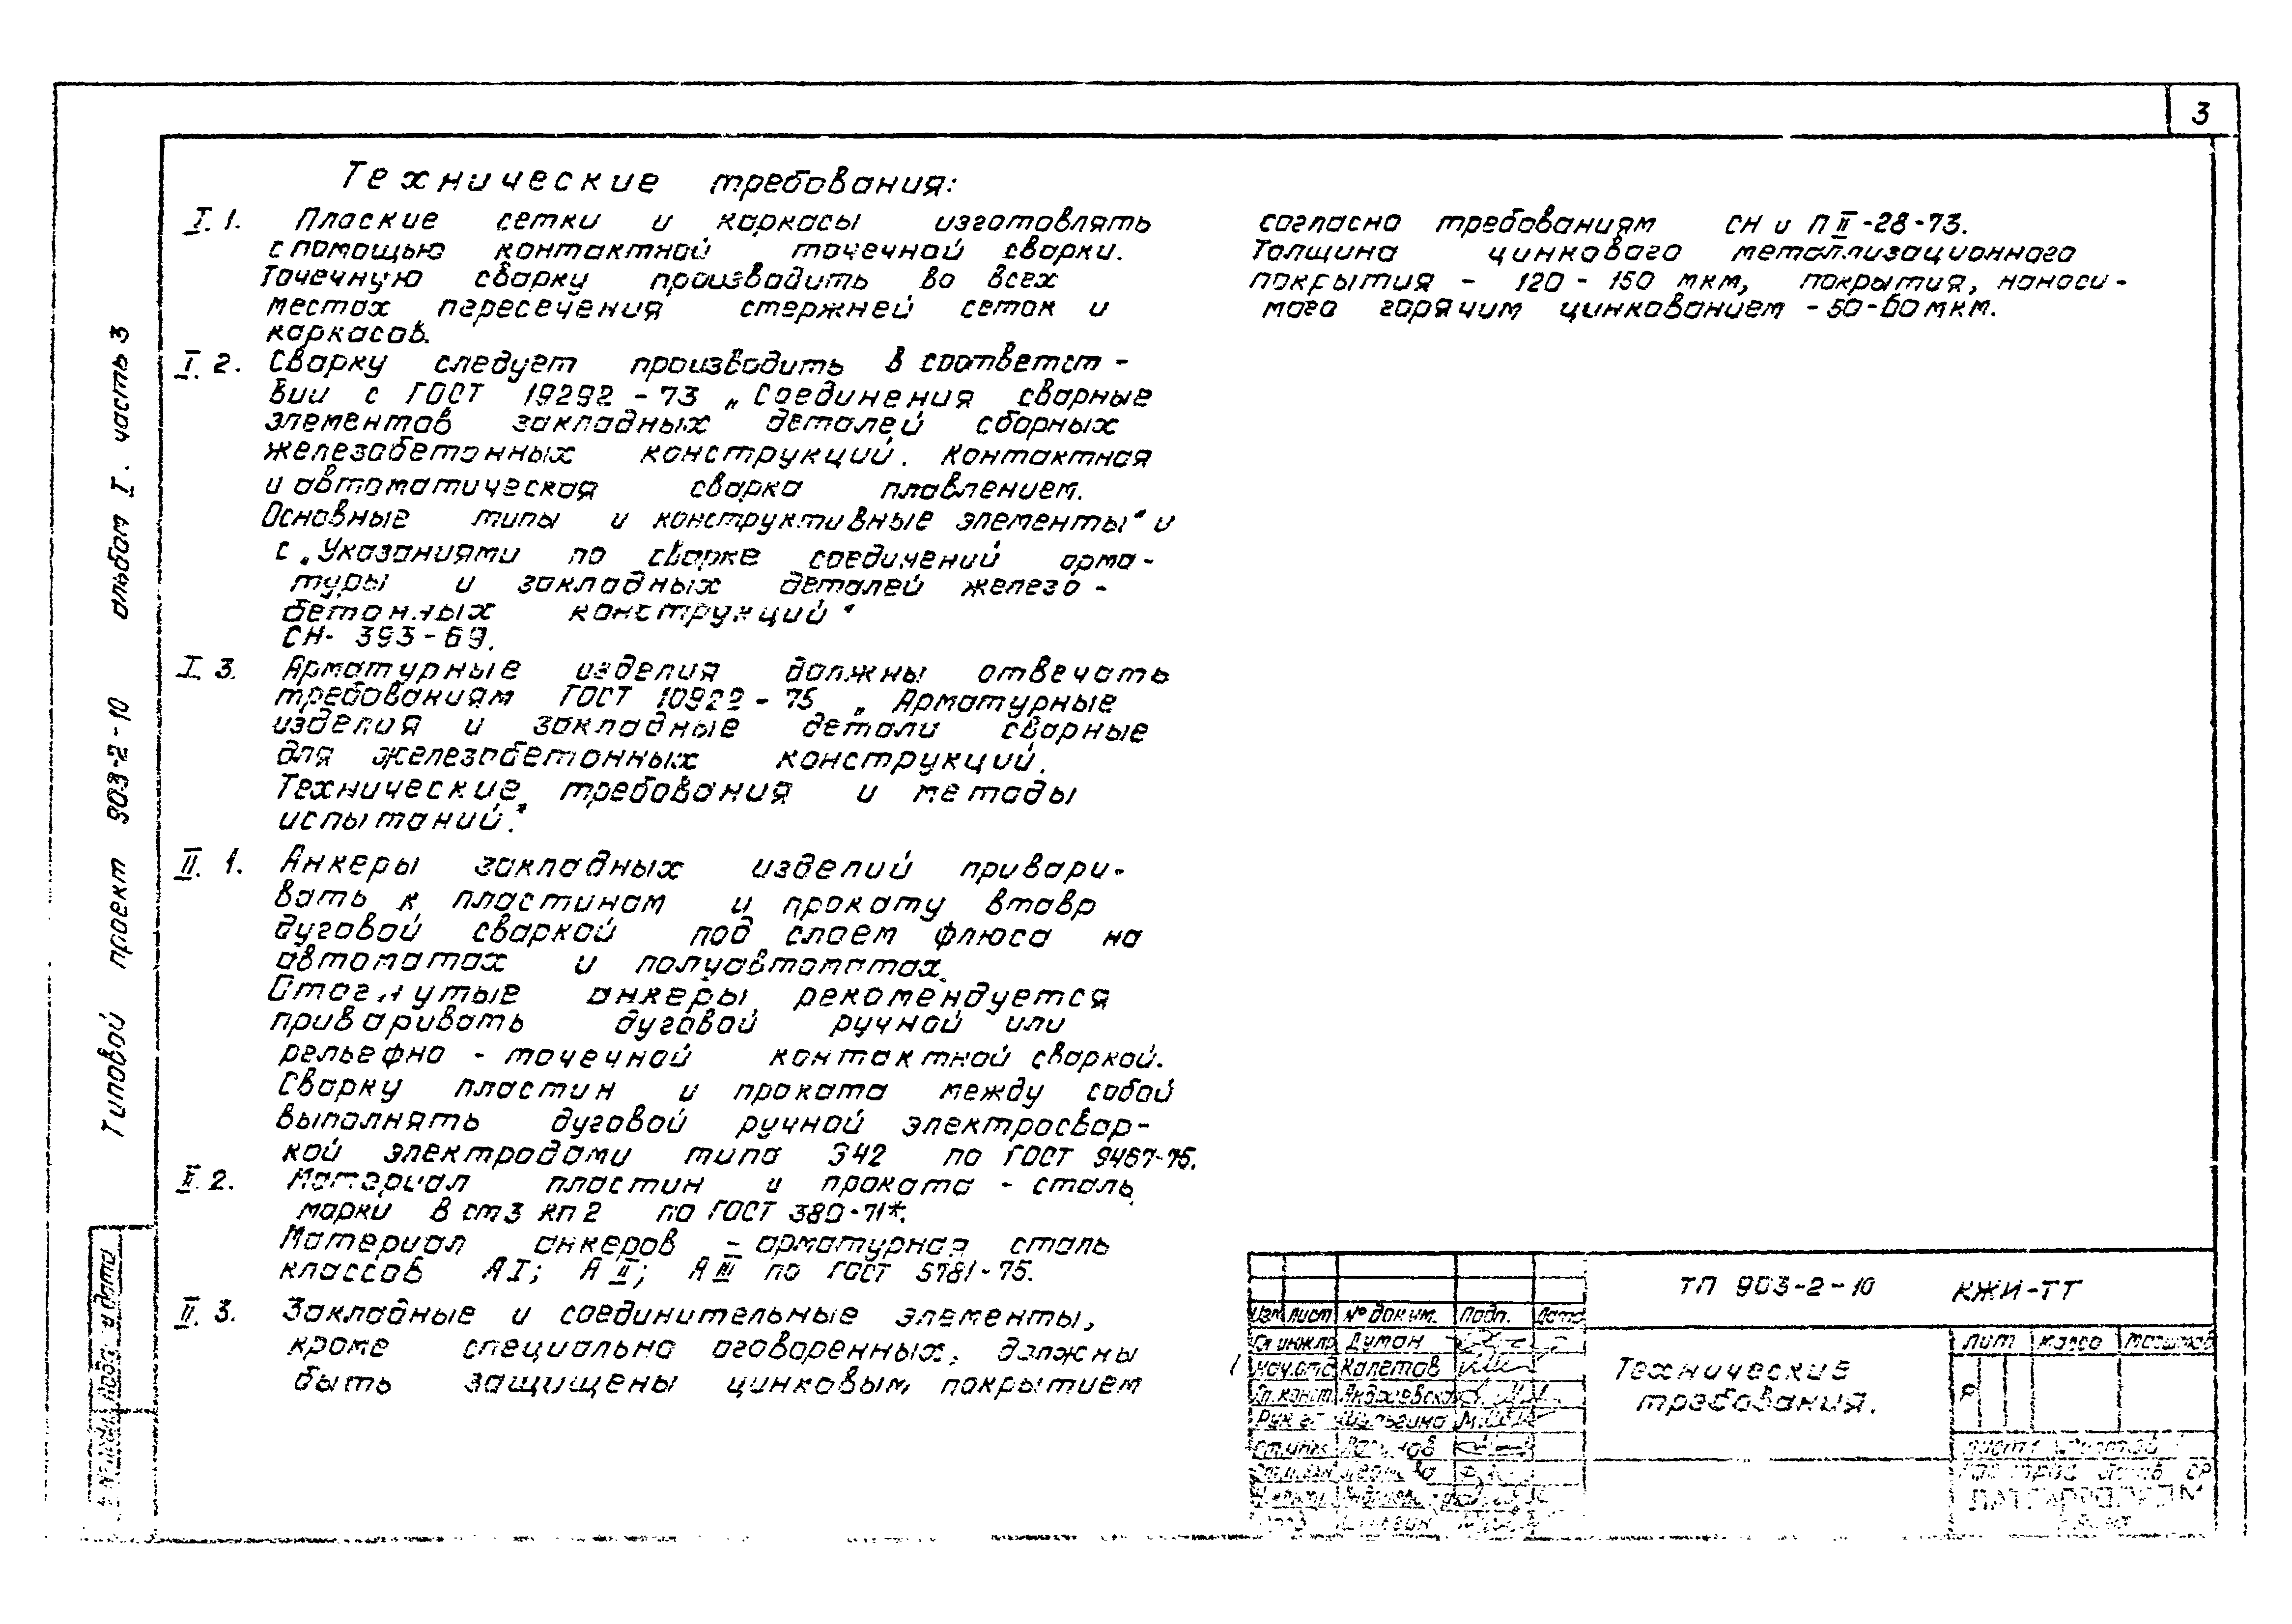 3
Технические требования:
I.1. Плоские сетки и каркасы изготовлять
с помощью контактной точечной сварки.
Точечную сварку производить во всех
местах пересечения стержней сеток и
каркасов.
I.2. Сварку следует производить в соответст-
вии с ГОСТ 19292-73 „Соединения сварные
элементов закладных деталей сборных
железобетонных конструкций. Контактная
и автоматическая сварка плавлением.
Основные типы и конструктивные элементы" и
с „Указаниями по сварке соединений арма-
туры и закладных деталей железо-
бетонных конструкций"
СН-393-69.
I.3. Арматурные изделия должны отвечать
требованиям ГОСТ 10922-75 „Арматурные
изделия и закладные детали сварные
для железобетонных конструкций.
Технические требования и методы
испытаний."
II.1. Анкеры закладных изделий привари-
вать к пластинам и прокату втавр
дуговой сваркой под слоем флюса на
автоматах и полуавтоматах.
Отогнутые анкеры рекомендуется
приваривать дуговой ручной или
рельефно-точечной контактной сваркой.
Сварку пластин и проката между собой
выполнять дуговой ручной электросвар-
кой электродами типа Э42 по ГОСТ 9467-75.
II.2. Материал пластин и проката - сталь
марки В ст3 кп2 по ГОСТ 380-71*.
Материал анкеров - арматурная сталь
классов АI; АII; АIII по ГОСТ 5781-75.
II.3. Закладные и соединительные элементы,
кроме специально оговоренных, должны
быть защищены цинковым покрытием
согласно требованиям СН и П II-28-73.
Толщина цинкового металлизационного
покрытия - 120-150 мкм, покрытия, наноси-
мого горячим цинкованием - 50-60 мкм.
Типовой проект 903-2-10 альбом I. часть 3
Подп. и дата
ТП 903-2-10 КЖИ-ТТ
Изм Лист № докум. Подп. Дата
Гл инж.пр Думан
Нач.отд Калетов
Гл. конст.
Рук гр Шульгина
Ст.инж
Технические
требования.
Лит Масса Масштаб
Р